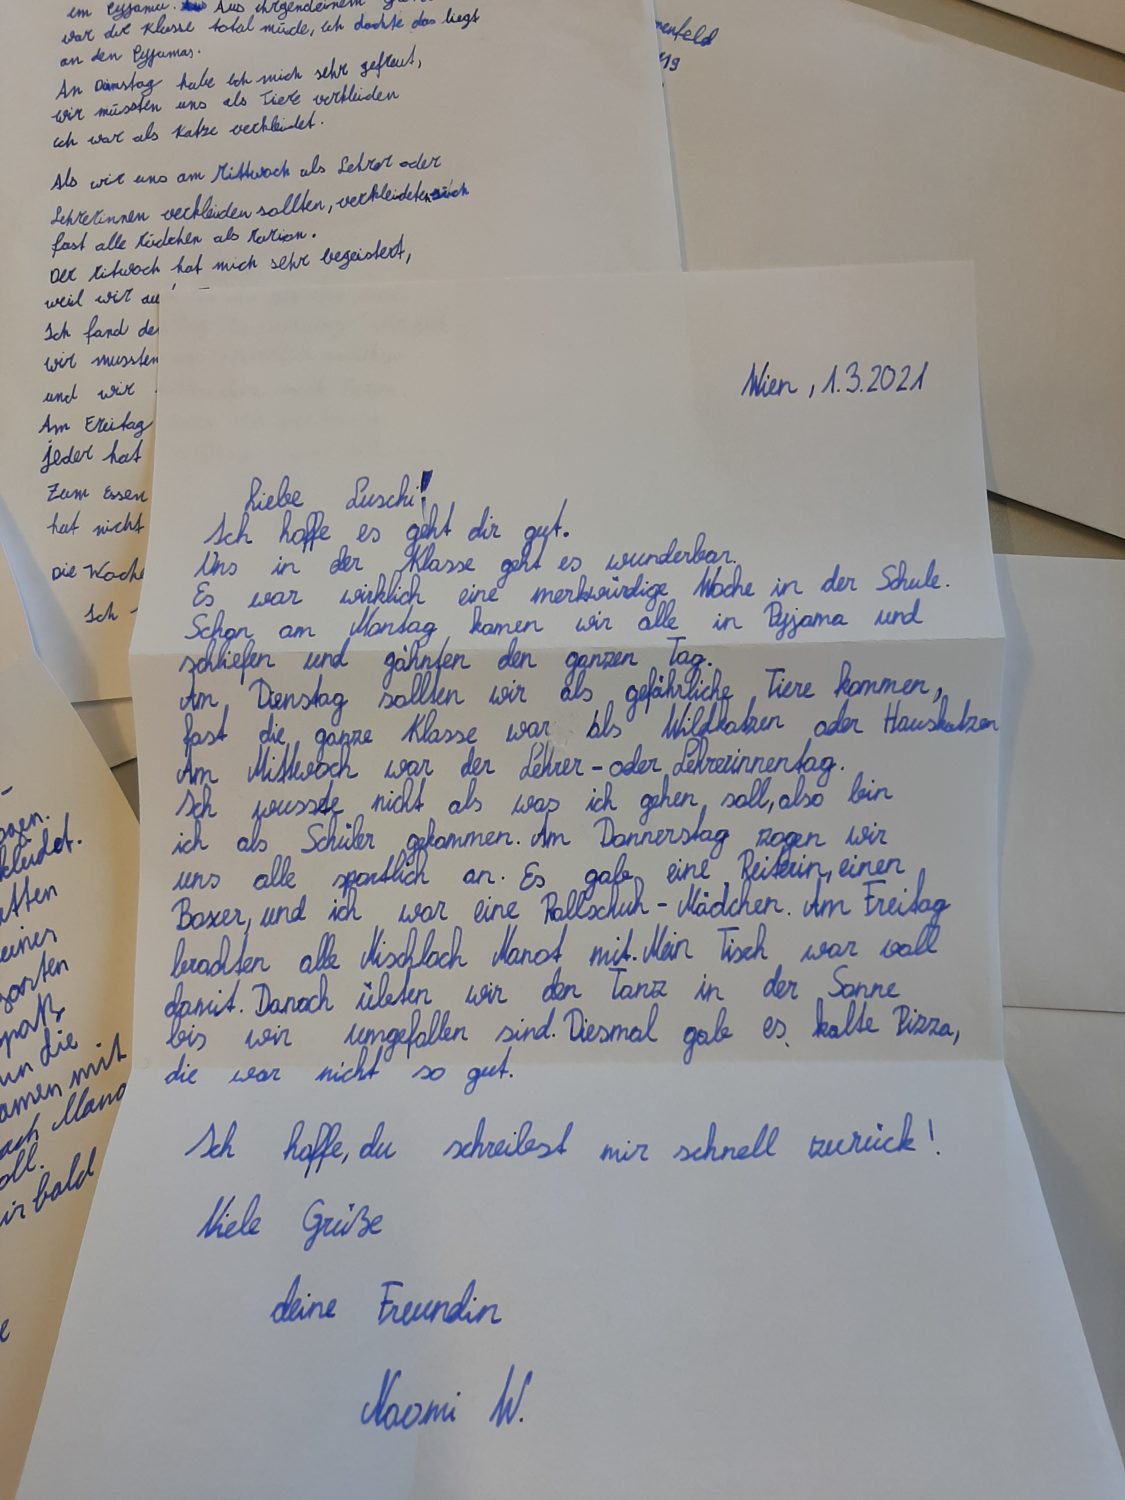 im Pyjama. Aus irgendeinem
war die Klasse total müde, ich dachte das liegt
an den Pyjamas.
An Dinstag habe ich mich sehr gefreut,
wir müssten uns als Tiere verkleiden
ich war als Katze verkleidet.
Als wir uns am Mittwoch als Lehrer oder
Lehrerinnen verkleiden sollten, verkleideten sich
fast alle Mädchen als Marion.
Der Mitwoch hat mich sehr begeistert,
weil wir
Ich fand
wir mussten
und wir
Am Freitag
jeder hat
Zum Essen
hat nicht
Die Woche
Ich
enfeld
19
Wien, 1.3.2021
Liebe Luschi!
Ich hoffe es geht dir gut.
Uns in der Klasse geht es wunderbar.
Es war wirklich eine merkwürdige Woche in der Schule.
Schon am Montag kamen wir alle in Pyjama und
schliefen und gähnten den ganzen Tag.
Am Dienstag sollten wir als gefährliche Tiere kommen,
fast die ganze Klasse war als Wildkatzen oder Hauskatzen
Am Mittwoch war der Lehrer-oder Lehrerinnentag.
Ich wusste nicht als was ich gehen soll, also bin
ich als Schüler gekommen. Am Donnerstag zogen wir
uns alle sportlich an. Es gab eine Reiterin, einen
Boxer, und ich war eine Rollschuh-Mädchen. Am Freitag
brachten alle Mischloch Manot mit. Mein Tisch war voll
damit. Danach übten wir den Tanz in der Sonne
bis wir umgefallen sind. Diesmal gab es kalte Pizza,
die war nicht so gut.
Ich hoffe, du schreibst mir schnell zurück!
Viele Grüße
deine Freundin
Naomi W.
kleidet.
atten
eines
orten
spaß
un die
amen mit
ach Mano
oll.
ir bald